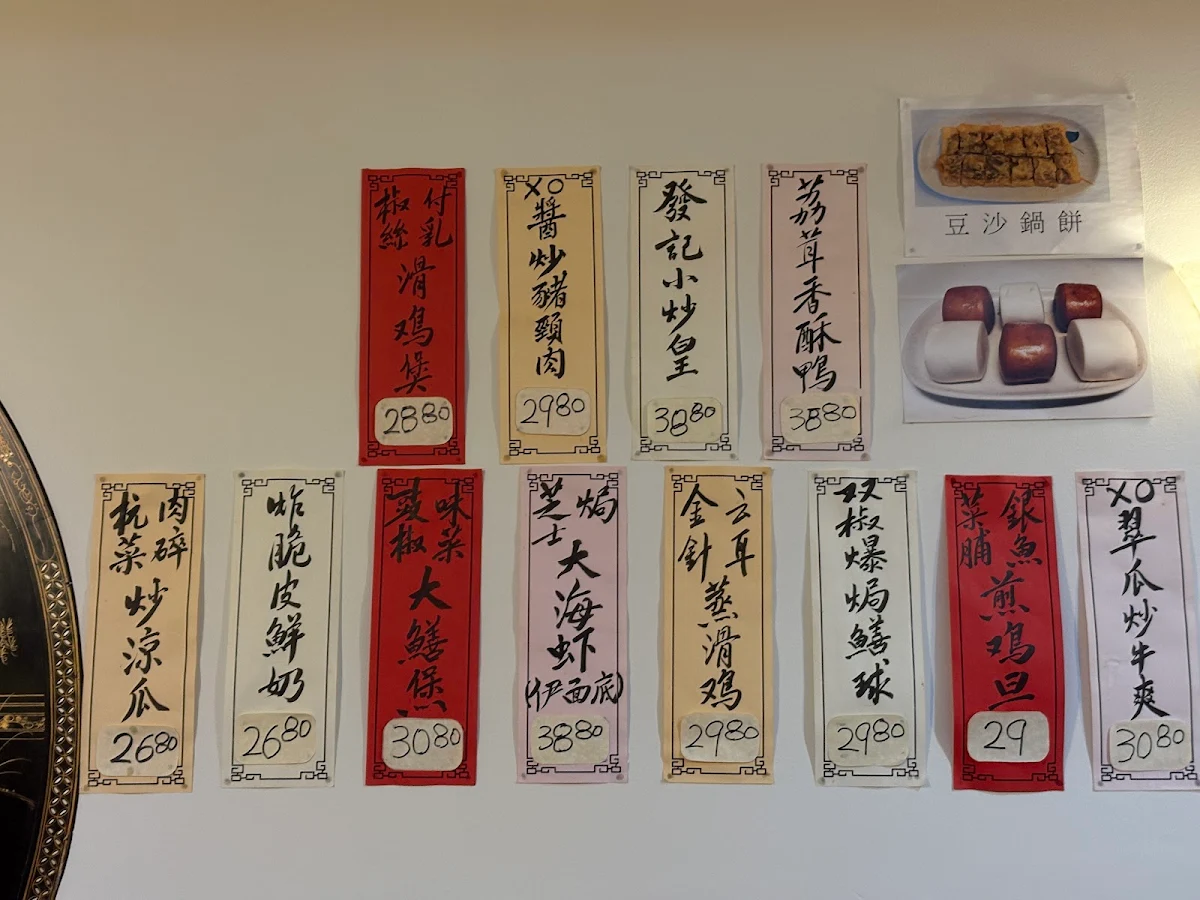 付乳
椒絲
滑鸡煲
28.80
XO醬炒豬頸肉
29.80
發記小炒皇
38.80
荔茸香酥鴨
38.80
豆沙鍋餅
肉碎
杭菜
炒涼瓜
26.80
炸脆皮鮮奶
26.80
味菜
豉椒
大鱔煲
30.80
芝士
焗
大海虾
(伊面底)
38.80
云耳
金針
蒸滑鸡
29.80
双椒爆焗鱔球
29.80
銀魚
菜脯
煎鸡旦
29
XO翠瓜炒牛爽
30.80